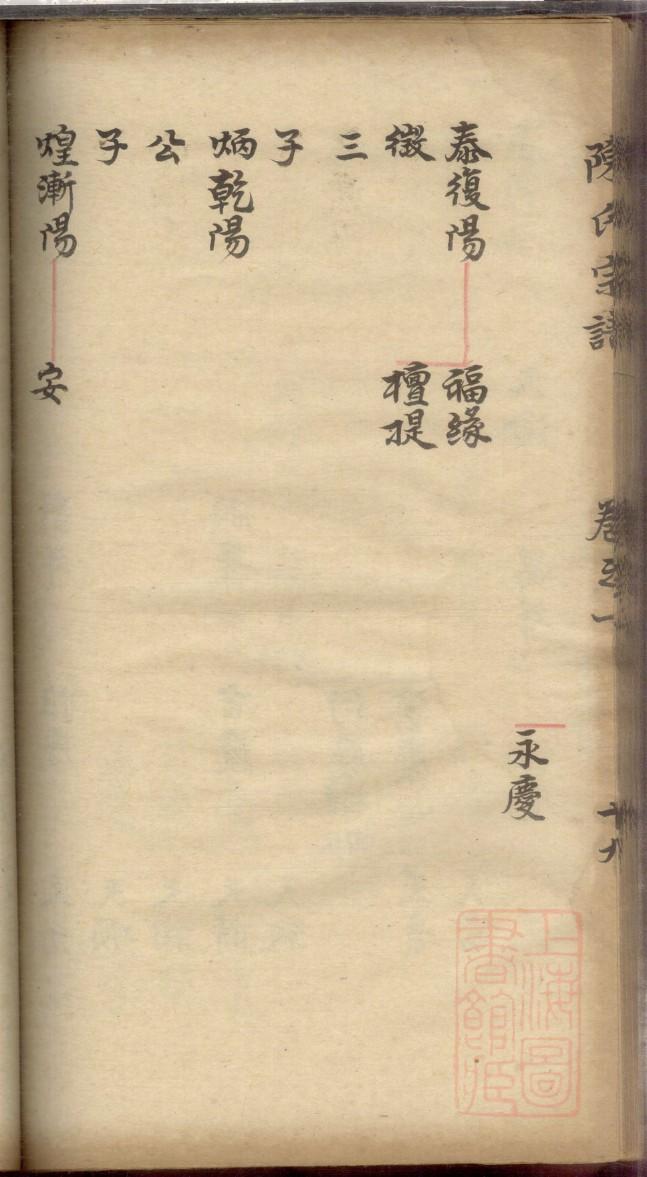 陳氏宗譜 卷之一 十九
永慶
泰復陽 福緣
徵 檀提
三
子
炳乾陽
公
子
煌漸陽 安
上海圖
書館藏